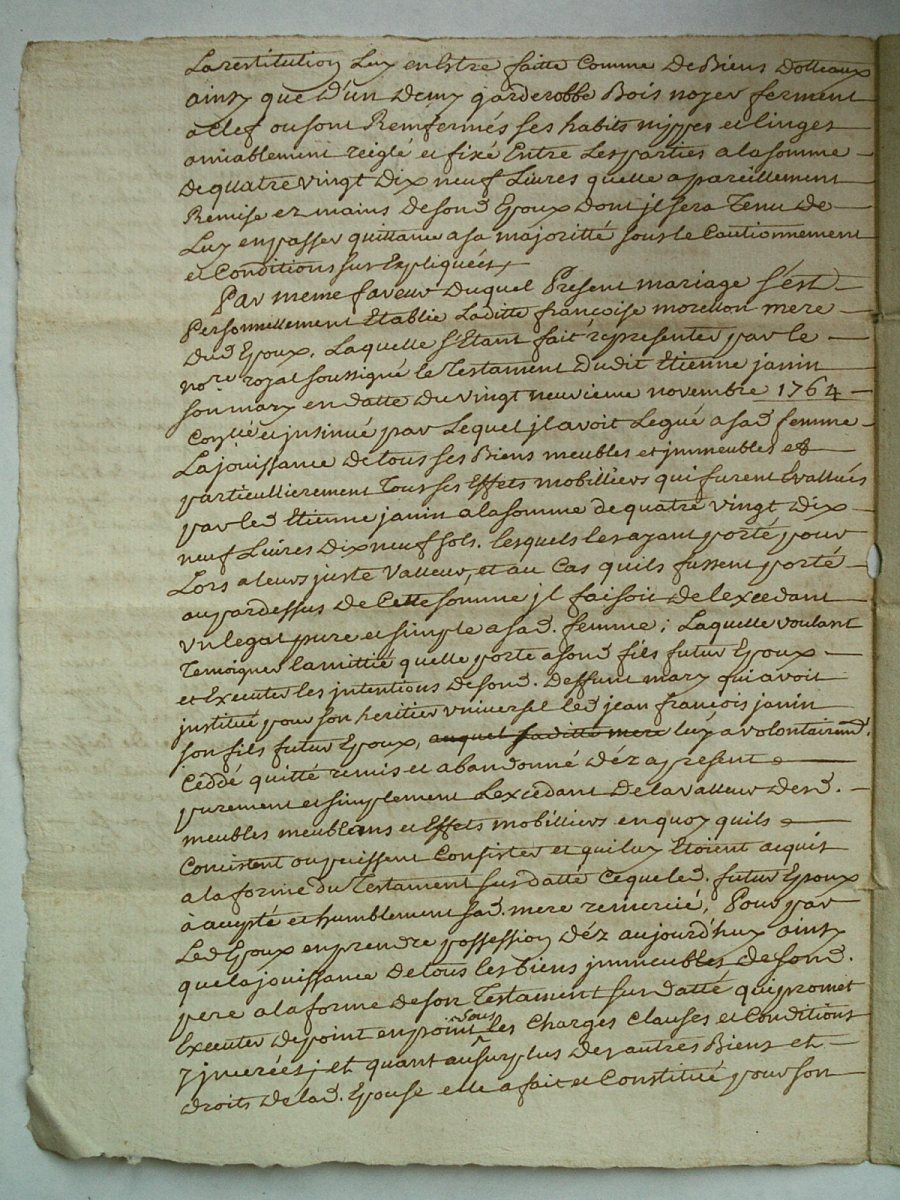 La restitution Luy en Estre faitte Comme De Biens Dotteaux
ainsy que D'un Demy garderobbe Bois noyer ferment
a Clef ou sont Remfermés ses habits nippes et linges
amiablement reiglé et fixé Entre Les parties a la somme
De quatre vingt Dix neuf Livres quelle a pareillement
Remise ez mains de sond Epoux Dont jl sera Tenu de
Luy en passer quittance a sa majoritté sous le Cautionnement
et Conditions sus Expliquées
Par meme faveur Duquel Present mariage s'est
Personnellement Etablie Laditte françoise morellon mere
Dud Epoux, Laquelle s'Etant fait representer par le
nore royal soussigné le Testament Dudit Etienne janin
son mary en datte Du vingt neuvieme novembre 1764
et jnsinué par Lequel jl avoit Legué a sad femme
La jouissance De tous ses Biens meubles et jmmeubles et
particullierement Tous ses Effets mobilliers qui furent Evallués
par led Etienne janin a la somme de quatre vingt Dix
neuf Livres Dix neuf sols. lesquels les ayant porté pour
Lors a leurs juste Valleur, et au Cas quils fussent porté
au pardessus De Cette somme jl faisoit De lexcedant
vn legat pure et simple a sad. femme; Laquelle voulant
Temoigner lamittié quelle porte a sond fils futur Epoux
et Executer les jntentions De sond. Deffunt mary qui avoit
justitué pour son heritier vniversel led jean françois janin
son fils futur Epoux, auquel saditte mere luy a volontairemt.
Ceddé quitté remis et abandonné Déz a present
purement et simplement Lexcedant De la valleur Desd.
meubles meublans et Effets mobilliers en quoy quils
Concistent ou puissent Consister et qui luy Etoient acquis
a la forme du Testament sus datté Ceque led. futur Epoux
à accepté et humblement sad. mere remercié, Pour par
Led Epoux en prendre possession Déz aujourd'huy ainsy
que la jouissance De tous les biens jmmeubles de sond.
pere a la forme de son Testament sus datté qui promet
Executer De point en point sous les Charges Clauses et Conditions
y jncerées; et quant au surplus Des autres Biens et
droits De lad. Epouse elle a fait et Constitué pour son